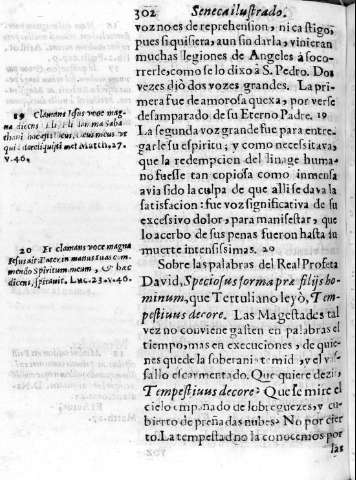 302 Seneca ilustrado.
voz no es de reprehension, ni castigo,
pues si quisiera, aun sin darla, vinieran
muchas legiones de Angeles à soco-
rrerle; como se lo dixo à S. Pedro. Dos
vezes diò dos vozes grandes. La pri-
mera fue de amorosa quexa, por verse
desamparado de su Eterno Padre. 19
La segunda voz grande fue para entre-
garle su espiritu; y como necessitava,
que la redempcion del linage huma-
no fuesse tan copiosa como inmensa
avia sido la culpa de que alli se dava la
satisfacion: fue voz significativa de su
excessivo dolor, para manifestar, que
lo acerbo de sus penas fueron hasta su
muerte intensissimas. 20
Sobre las palabras del Real Profeta
David, Speciosus forma præ filijs ho-
minum, que Tertuliano leyò, Tem-
pestiuus decore. Las Magestades tal
vez no conviene gasten en palabras el
tiempo, mas en execuciones, de quie-
nes quede la soberania temida, y el va-
sallo escarmentado. Que quiere dezir,
Tempestiuus decore? Que se mire el
cielo empañado de lobregueces, y cu-
bierto de preñadas nubes? No por cier-
to. La tempestad no la conocemos por
las
19 Clamans Iesus voce mag-
na dicens Eli, Eli lamma Saba-
thani hoc est Deus, Deus meus vt
qui dereliquisti me? Matth. 27.
v. 46.
20 Et clamans voce magna
Iesus ait Pater in manus tuas com-
mendo Spiritum meum, & hæc
dicens, spiravit. Luc. 23. v. 46.